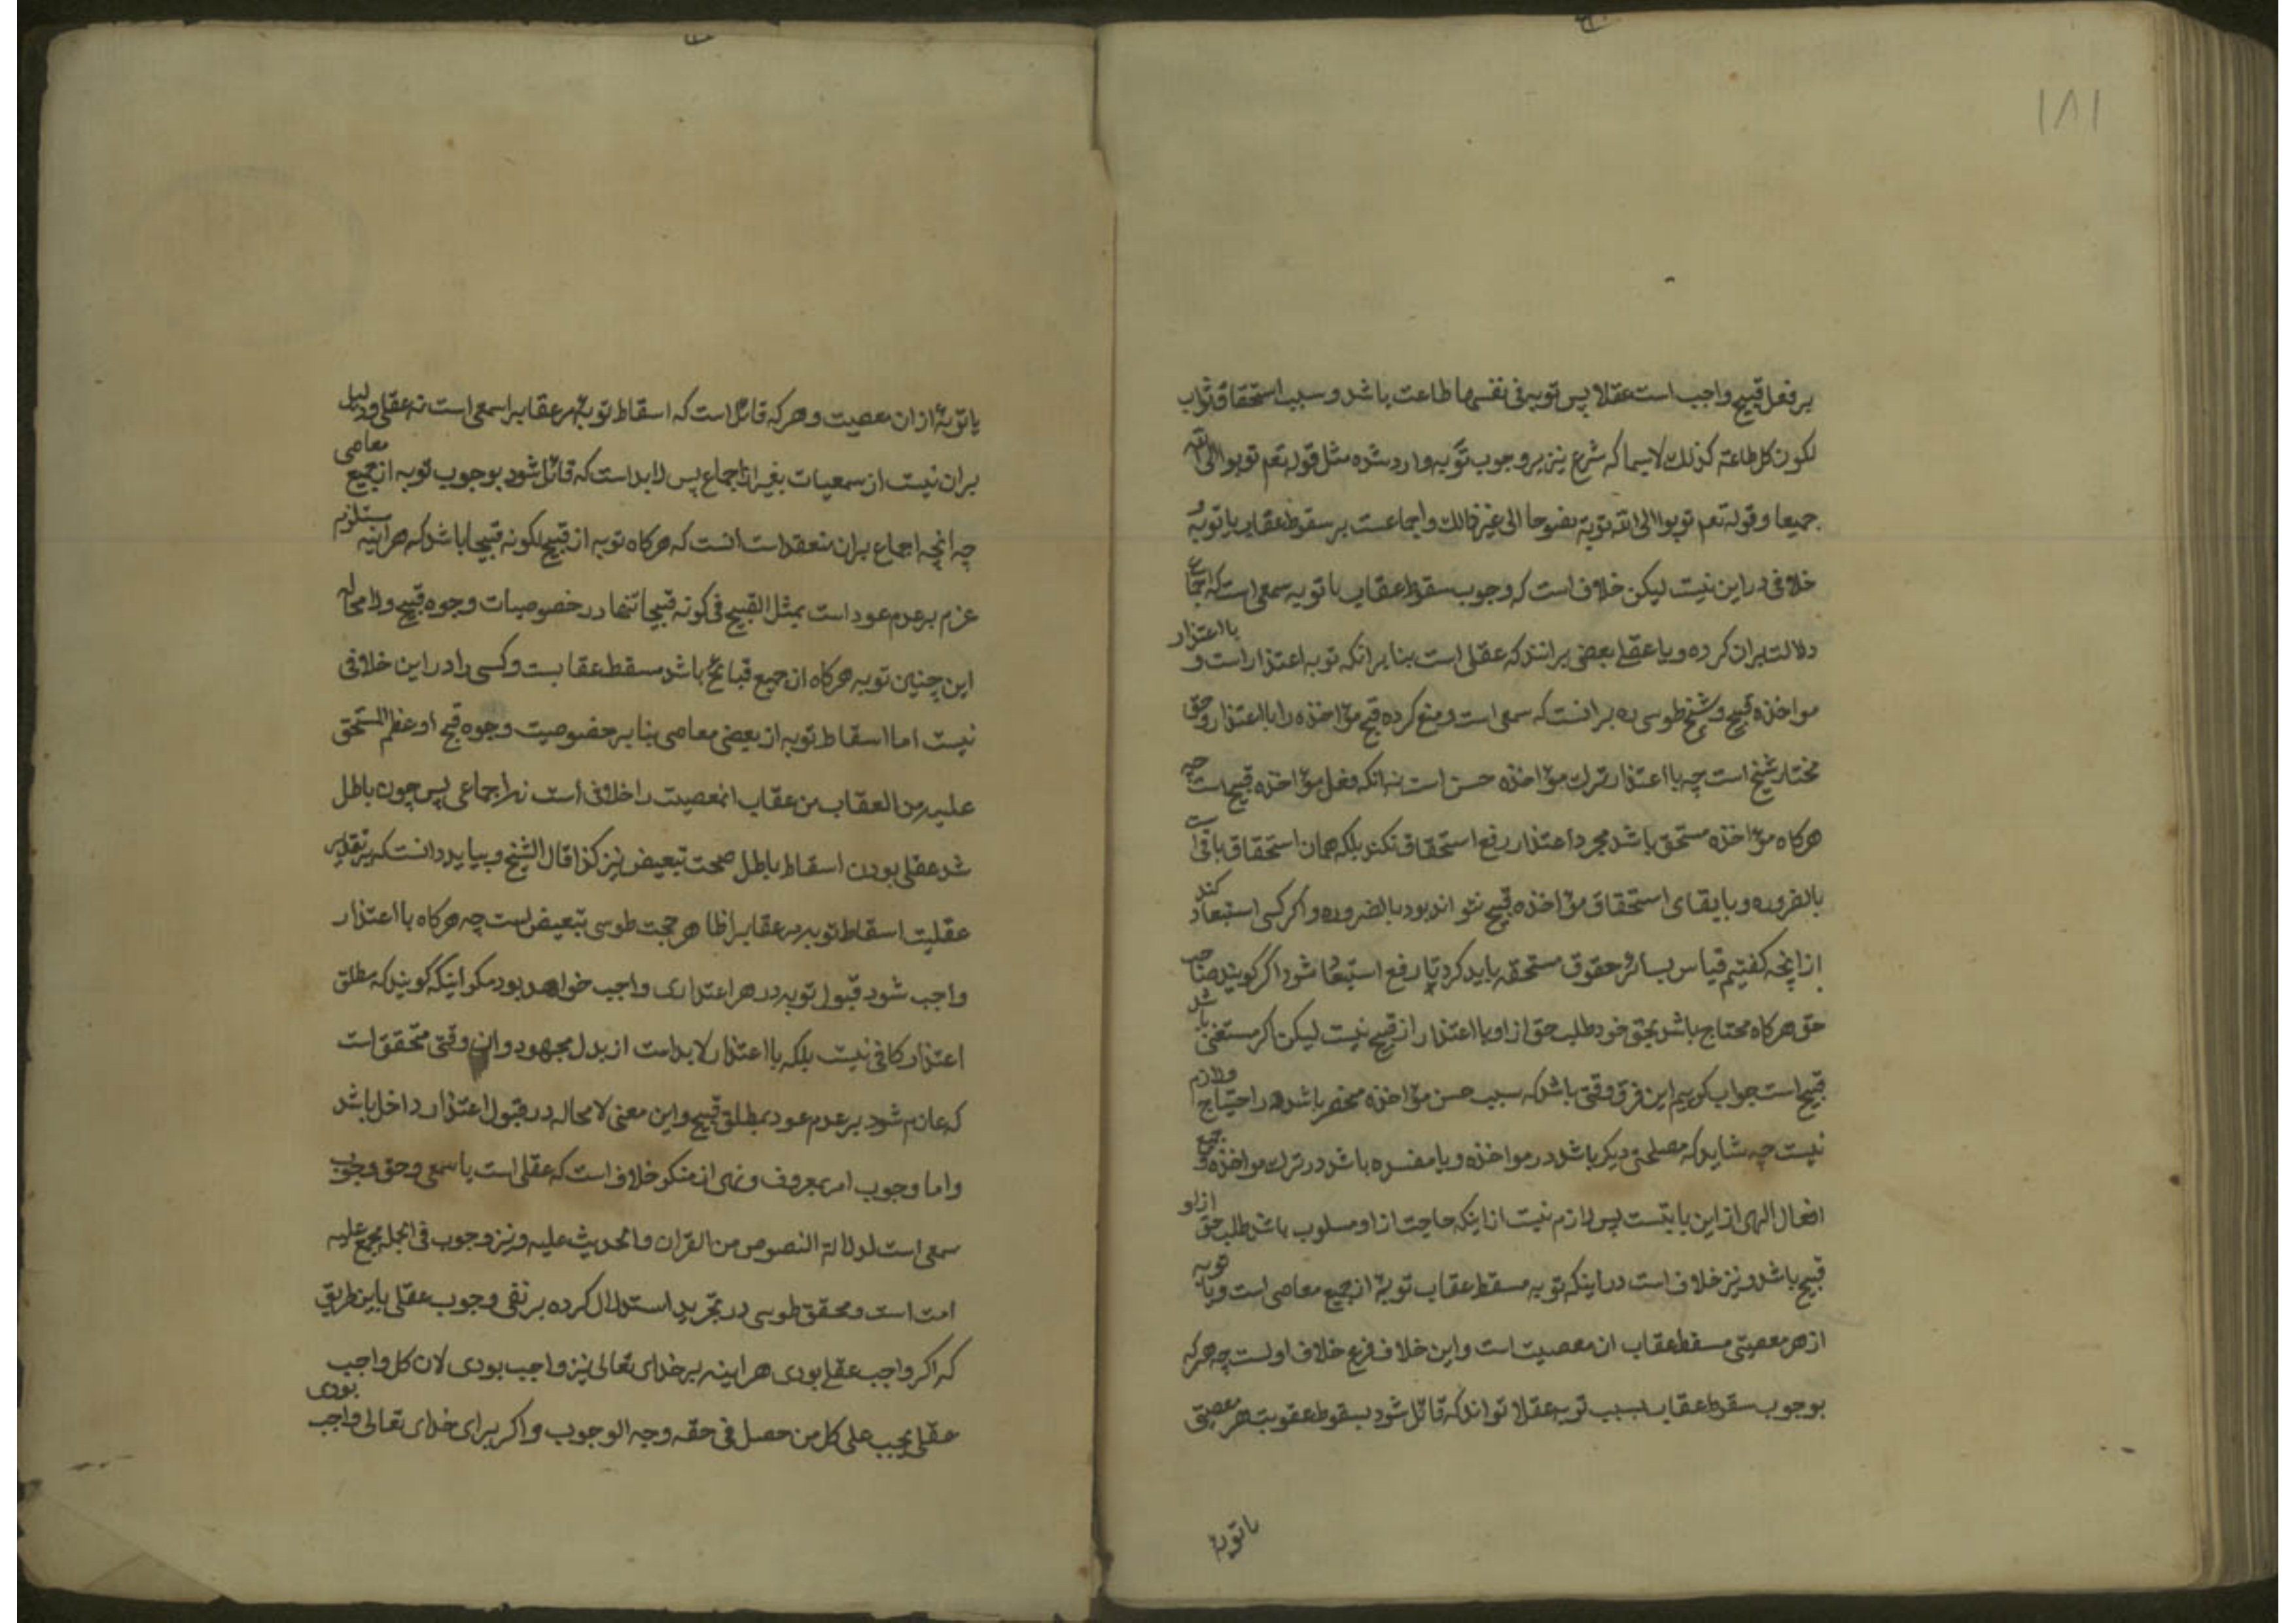 ۱۸۱
بر فعل قبیح واجب است عقلا پس توبه فی نفسها طاعت باشد و سبب استحقاق ثواب
لکون کل طاعة کذلک لا سیما که شرع نیز بر وجوب توبه وارد شده مثل قوله تعم توبوا الی الله
جمیعا و قوله تعم توبوا الی الله توبة نصوحا الی غیر ذالک و اجماعست بر سقوط عقاب با توبه و
خلافی در این نیست لیکن خلاف است که وجوب سقوط عقاب با توبه سمعی است که اجماع
دلالت بر ان کرده و یا عقلے بعضی برانند که عقلی است بنا بر انکه توبه اعتذار است و با اعتذار
مواخذه قبیح و شیخ طوسی ره بر انست که سمعی است و منع کرده قبح مؤاخذه را با اعتذار و حق
مختار شیخ است چه با اعتذار ترک مؤاخذه حسن است نه انکه فعل مؤاخذه قبیح است چه
هرکاه مؤاخذه مستحق باشد مجرد اعتذار رفع استحقاق نکند بلکه همان استحقاق باقی است
بالضروره و با بقای استحقاق مؤاخذه قبیح نتواند بود بالضروره و اکر کسی استبعاد کند
از اینچه کفتیم قیاس بسائر حقوق مستحقه باید کرد تا رفع استبعاد شود اگر گویند صاحب
حق هرکاه محتاج باشد بحق خود طلب حق از او با اعتذار از قبیح نیست لیکن اکر مستغنی باشد
قبیح است جواب کوییم این فرق وقتی باشد که سبب حسن مؤاخذه منحصر باشد در احتیاج و لازم
نیست چه شاید که مصلحتی دیکر باشد در مواخذه و یا مفسده باشد در ترک مواخذه و جمیع
افعال الهی از این بابتست پس لازم نیست از اینکه حاجت از او مسلوب باشد طلب حق از او
قبیح باشد و نیز خلاف است در اینکه توبه مسقط عقاب توبهٔ از جمیع معاصی است و یا توبه
از هر معصیتی مسقط عقاب ان معصیت است و این خلاف فرع خلاف اولست چه هر که
بوجوب سقوط عقاب بسبب توبه عقلا تواند که قائل شود بسقوط عقوبت هر معصیتی
با توبهٔ
با توبهٔ از ان معصیت و هر که قائل است که اسقاط توبه مر عقاب را سمعی است نه عقلی و دلیل
بران نیست از سمعیات بغیر از اجماع پس لابد است که قائل شود بوجوب توبه از جمیع معاصی
چه انچه اجماع بران منعقد است انست که هرکاه توبه از قبیح لکونه قبیحا باشد که هراینه مستلزم
عزم بر عدم عود است بمثل القبیح فی کونه قبیحا تنها در خصوصیات وجوه قبیح و لا محاله
این چنین توبه هرکاه از جمیع قبائح باشد مسقط عقابست و کسی را در این خلافی
نیست اما اسقاط توبه از بعضی معاصی بنا بر خصوصیت وجوه قبح او عظم المستحق
علیه من العقاب من عقاب انمعصیت را خلافی است نه اجماعی پس چون باطل
شد عقلی بودن اسقاط باطل صحت تبعیض نیز کذا قال الشیخ و بیاید دانست که بر تقدیر
عقلیت اسقاط توبه مر عقاب را ظاهر حجت طوسی تبعیض است چه هرکاه با اعتذار
واجب شود قبول توبه در هر اعتذاری واجب خواهد بود مکر اینکه کویند که مطلق
اعتذار کافی نیست بلکه با اعتذار لابد است از بدل مجهود و ان وقتی متحقق است
که عازم شود بر عدم عود بمطلق قبیح و این معنی لا محاله در قبول اعتذار داخل باشد
و اما وجوب امر بمعروف و نهی از منکر خلاف است که عقلی است یا سمعی و حق وجوب
سمعی است لدلالة النصوص من القران و الحدیث علیه و نیز وجوب فی الجمله مجمع علیه
امت است و محقق طوسی در تجرید استدلال کرده بر نفی وجوب عقلی باین طریق
که اکر واجب عقلے بودی هراینه بر خدای تعالی نیز واجب بودی لان کل واجب
عقلی یجب علی کل من حصل فی حقه وجه الوجوب و اکر برای خدای تعالی واجب بودی